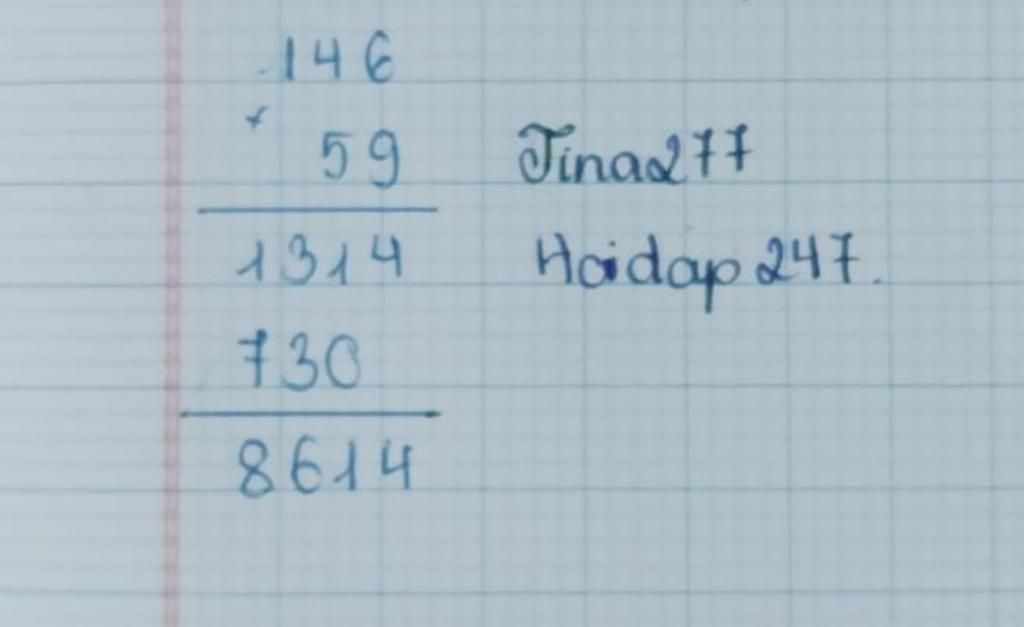 146
×
59 Tina277
1314 Hoidap247.
730
8614